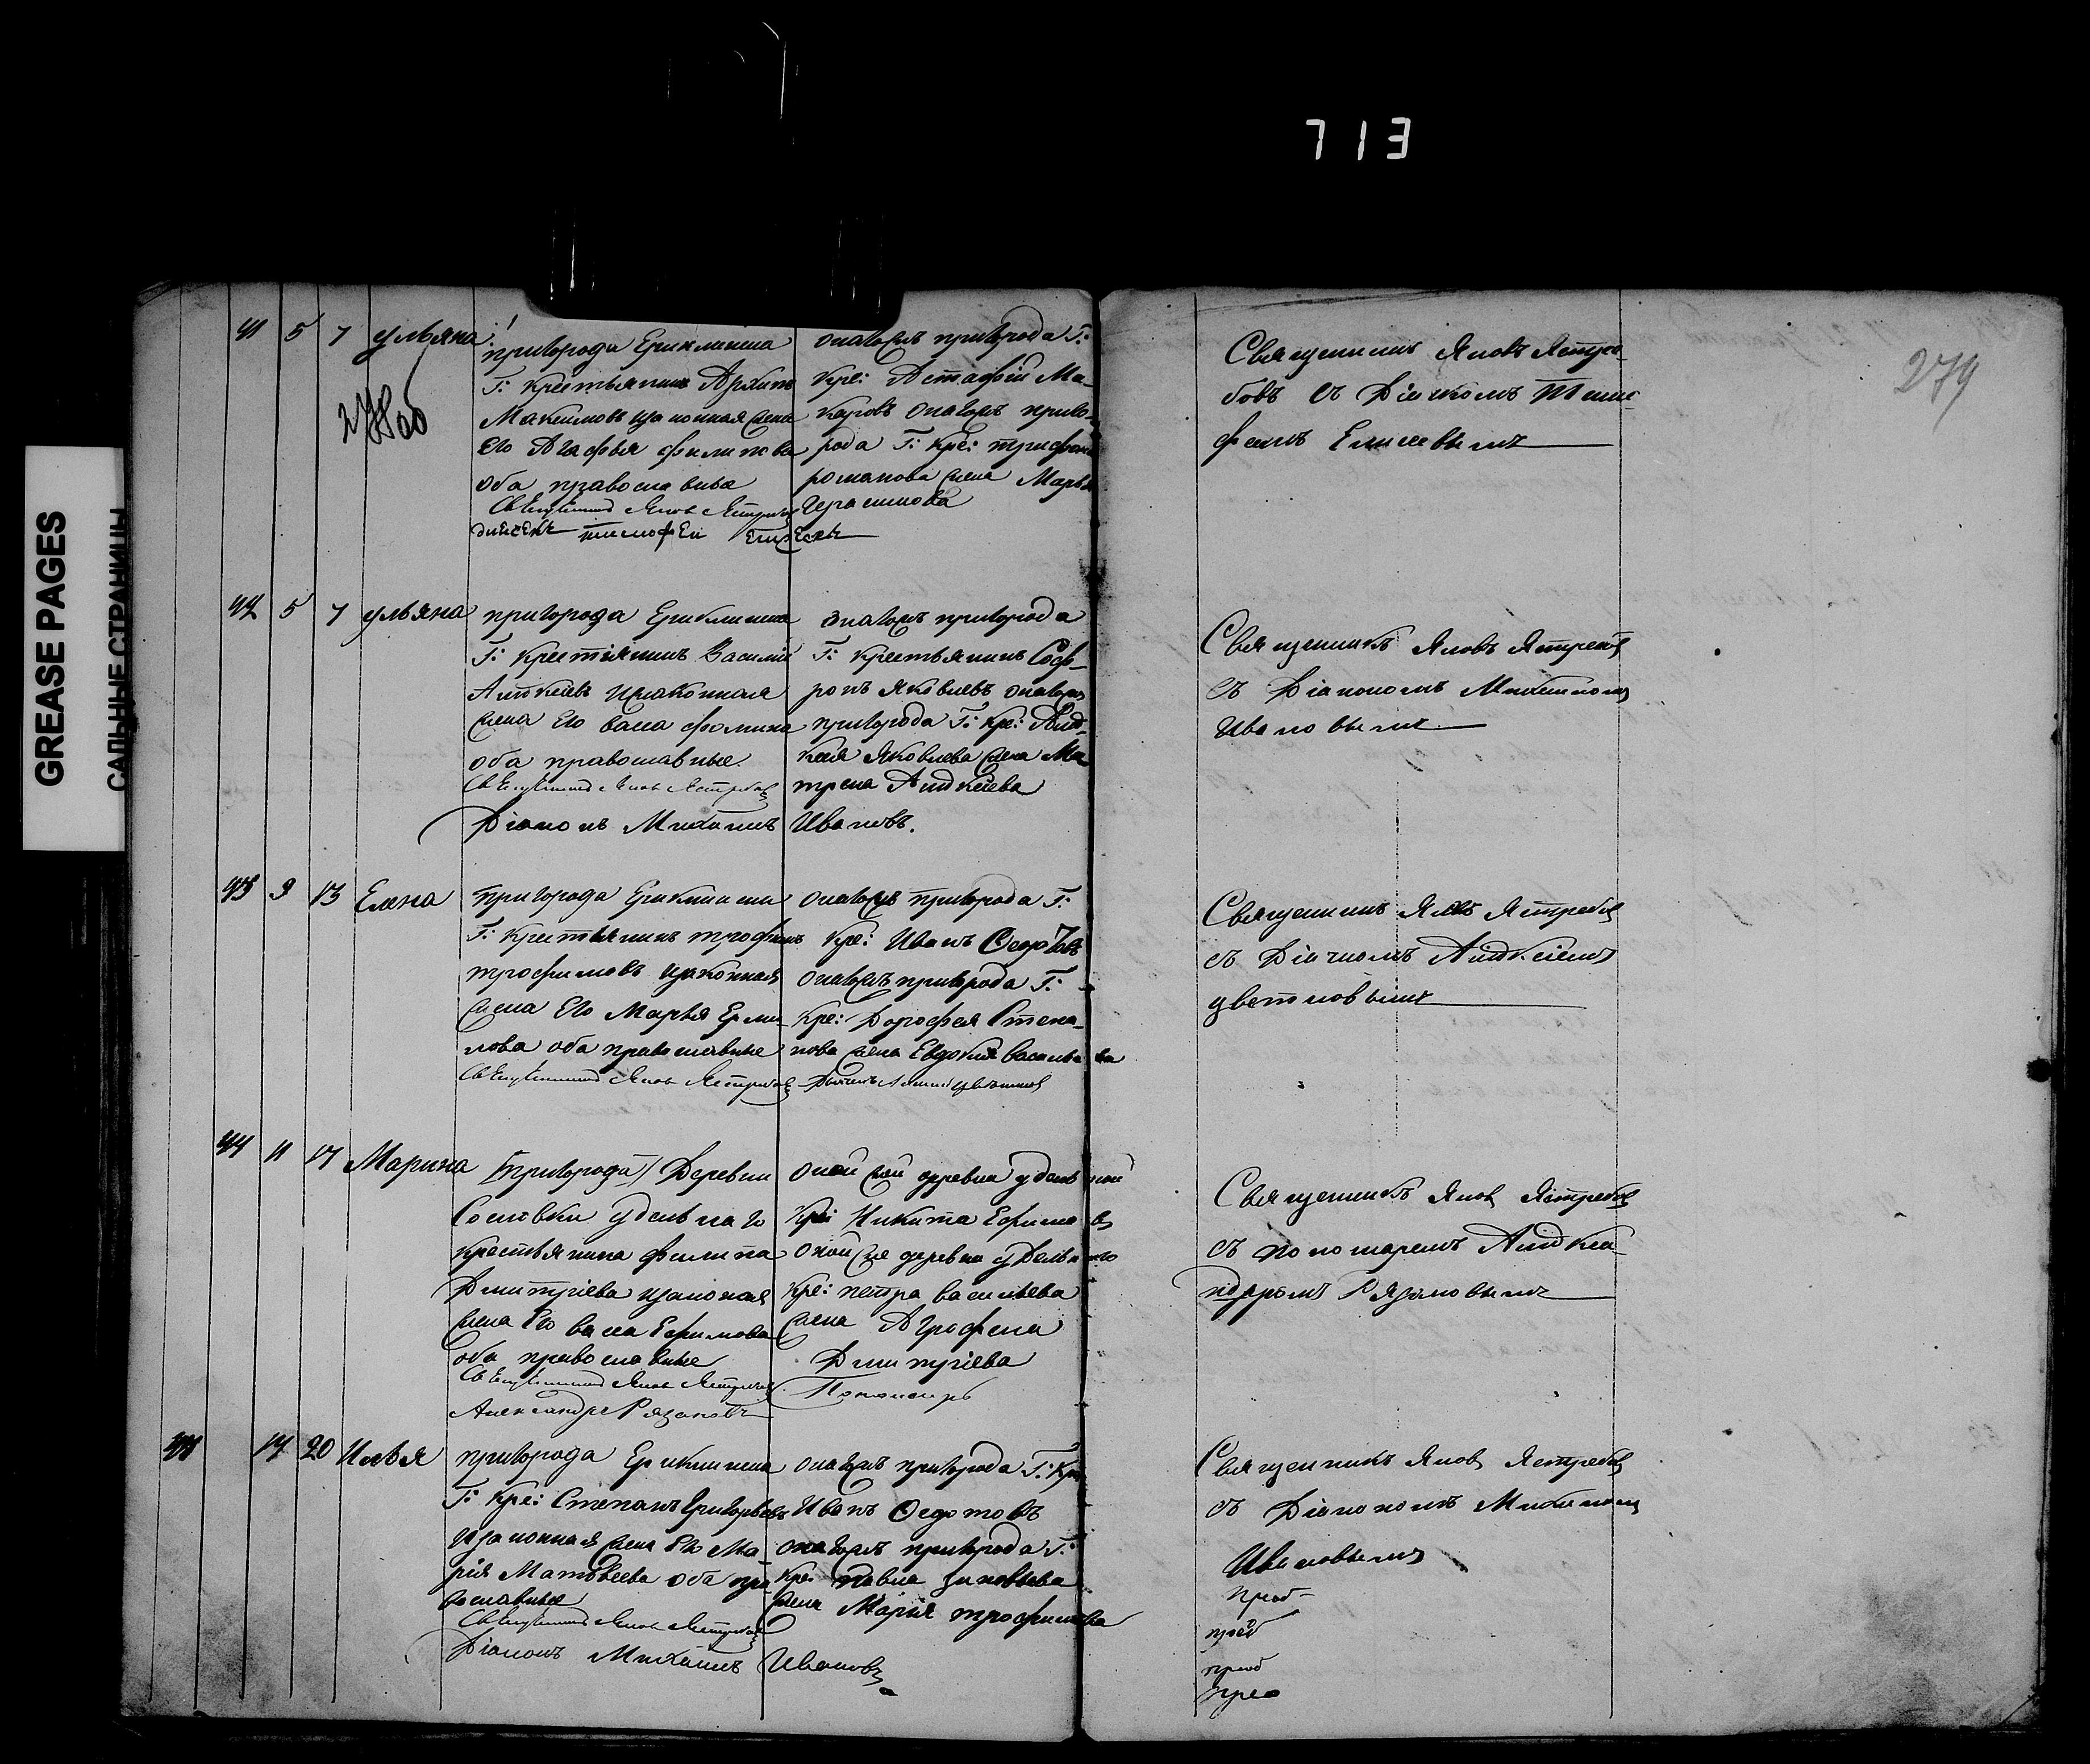 713
GREASE PAGES
САЛЬНЫЕ СТРАНИЦЫ
279
278 об
41 5 7 ульяна
пригорода Ериклинска
Г: крестьянинъ Архипъ
Максимовъ изаконная жена
его Агафья филипова
оба православные
Священникъ Яковъ Ястребовъ
дьячекъ тимофеи Елисеевъ
онагожъ пригорода Г:
кре: Астафiй Ма-
каровъ онагожъ приго-
рода Г: кре: трифона
романова жена Марья
Герасимова
Священникъ Яковъ Ястре-
бовъ съ Дiячкомъ Тимо-
феемъ Елисеевымъ
42 5 7 ульяна
пригорода Ериклинска
Г: крестiянинъ Василiй
Алексеевъ изаконная
жена его васа фомина
оба православные
Священникъ Яковъ Ястребовъ
Дiаконъ Михаилъ Ивановъ.
онагожъ пригорода
Г: крестьянинъ Соф-
ронъ Яковлевъ онагожъ
пригорода Г: кре: Алек-
сея Яковлева жена Ма
трена Алексеева
Священникъ Яковъ Ястребовъ
съ Дiакономъ Михаиломъ
Ивановымъ
43 9 13 Елена
пригорода Ериклинска
Г: крестьянинъ трофимъ
трофимовъ изаконная
жена его Марья Ерми
лова оба православные
Священникъ Яковъ Ястребовъ
онагожъ пригорода Г:
кре: Иванъ Ѳедотовъ
онагожъ пригорода Г:
кре: Дорофея Степа-
нова жена Евдокия васильева
Священникъ Яковъ Ястребовъ
съ Дiячкомъ Алексеемъ
цветковымъ
44 11 17 Марина
(пригорода) Деревни
Сосновки удельнаго
крестьянина филипа
Дмитрiева изаконая
жена его васа Ефимова
оба православные
Священникъ Яковъ Ястребовъ
Пономарь
Александръ Рязановъ
оной же деревни удельной
кре: Никита Ефимовъ
оной же деревни удельнаго
кре: петра васильева
жена Агрофена
Дмитрiева
Священникъ Яковъ Ястребовъ
съ пономаремъ Алекса-
ндромъ Рязановымъ
14 20 Илья
пригорода Ериклинска
Г: кре: Степанъ Григорьевъ
изаконная жена его Ма
рiя Матовеева оба пра
вославные
Священникъ Яковъ Ястребовъ
Дiаконъ Михаилъ Ивановъ
онагожъ пригорода Г: кре
Иванъ Ѳедотовъ
онагожъ пригорода Г:
кре: павла зиновьева
жена Марiя трофимова
Священникъ Яковъ Ястребовъ
съ Дiакономъ Михаиломъ
Ивановымъ